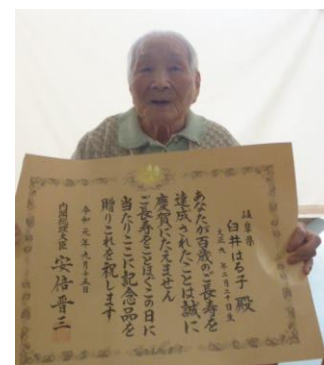 岐阜県
臼井はる子 殿
大正九年二月二十日生
あなたが百歳のご長寿を
達成されたことは誠に
慶賀にたえません
ご長寿をことほぐこの日に
当たりここに記念品を
贈りこれを祝します
令和元年九月十五日
内閣総理大臣 安倍晋三